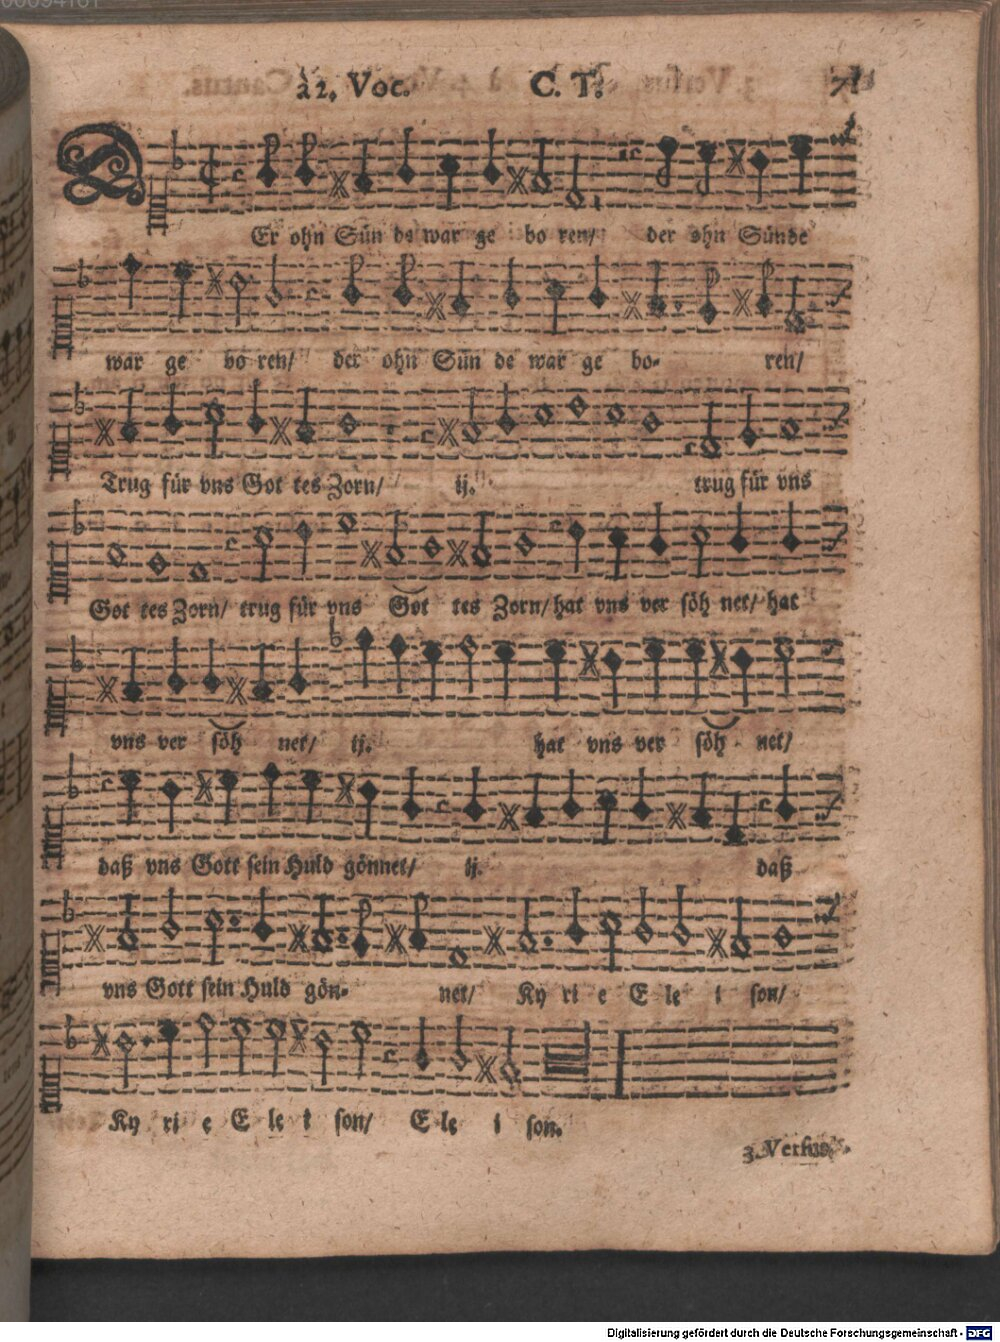 00094161
à 2. Voc. C. T.
DEr ohn Sün de war ge bo ren/ der ohn Sünde
war ge bo ren/ der ohn Sün de war ge bo- ren/
Trug für vns Got tes Zorn/ ij. trug für vns
Got tes Zorn/ trug für vns Got tes Zorn/ hat vns ver söh net/ hat
vns ver söh net/ ij. hat vns ver söh net/
daß vns Gott sein Huld gönnet/ ij. daß
vns Gott sein Huld gön- net/ Ky ri e E le i son/
Ky ri e E le i son/ E le i son.
3. Versus.
Digitalisierung gefördert durch die Deutsche Forschungsgemeinschaft - DFG